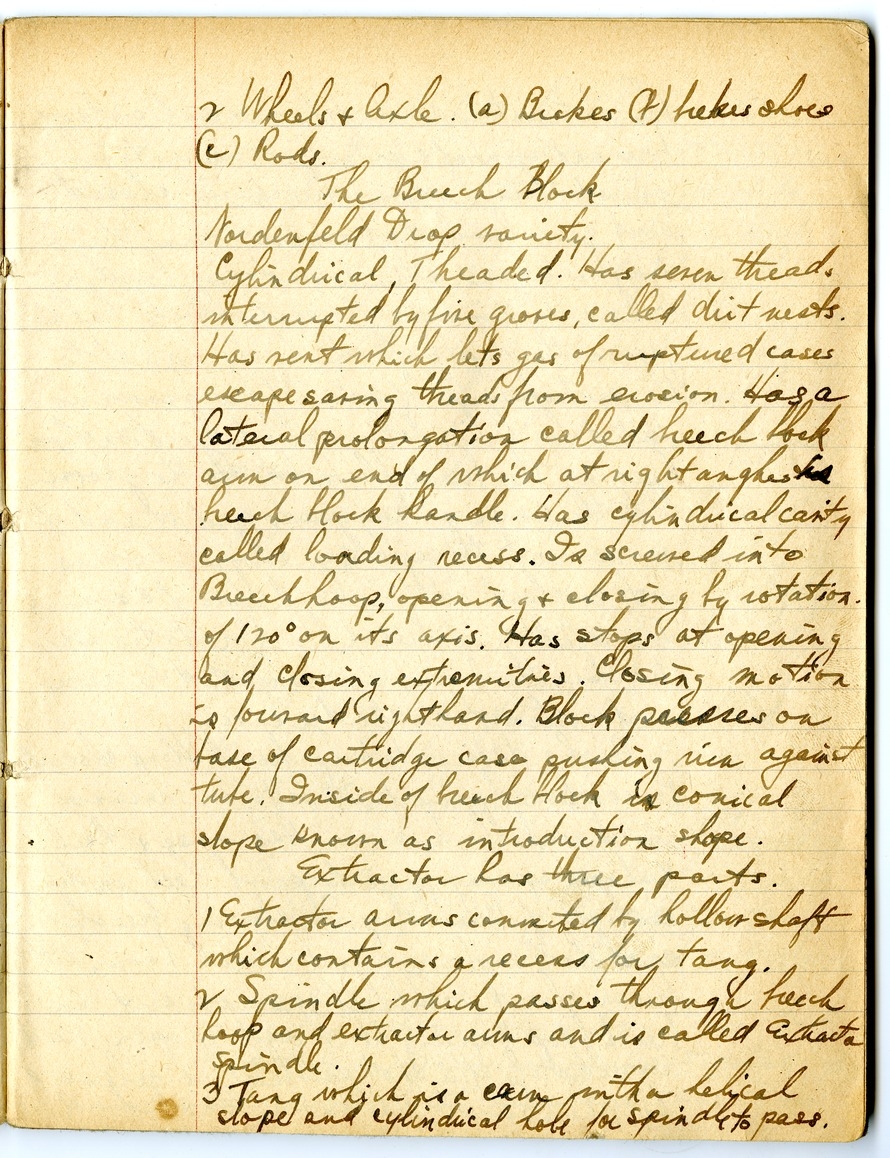 2 Wheels & Axle. (a) Brakes (b) brakes shoes
(c) Rods.
The Breech Block
Nordenfeld Drop variety.
Cylindrical, Theaded. Has seven threads
interrupted by five groves, called dirt nests.
Has vent which lets gas of ruptured cases
escape saving threads from erosion. Has a
lateral prolongation called breech block
arm on end of which at right angles is
breech block handle. Has cylindrical cavity
called loading recess. Is screwed into
Breechhoop, opening & closing by rotation.
of 120° on its axis. Has stops at opening
and closing extremities. Closing motion
is forward right hand. Block presses on
base of cartridge case pushing rim against
tube. Inside of breech block is conical
slope known as introduction slope.
Extractor has three parts.
1 Extractor arms connected by hollow shaft
which contains a recess for tang.
2 Spindle which passes through breech
hoop and extractor arms and is called Extractor
spindle.
3 Tang which is a cam with a helical
slope and cylindrical hole for spindle to pass.